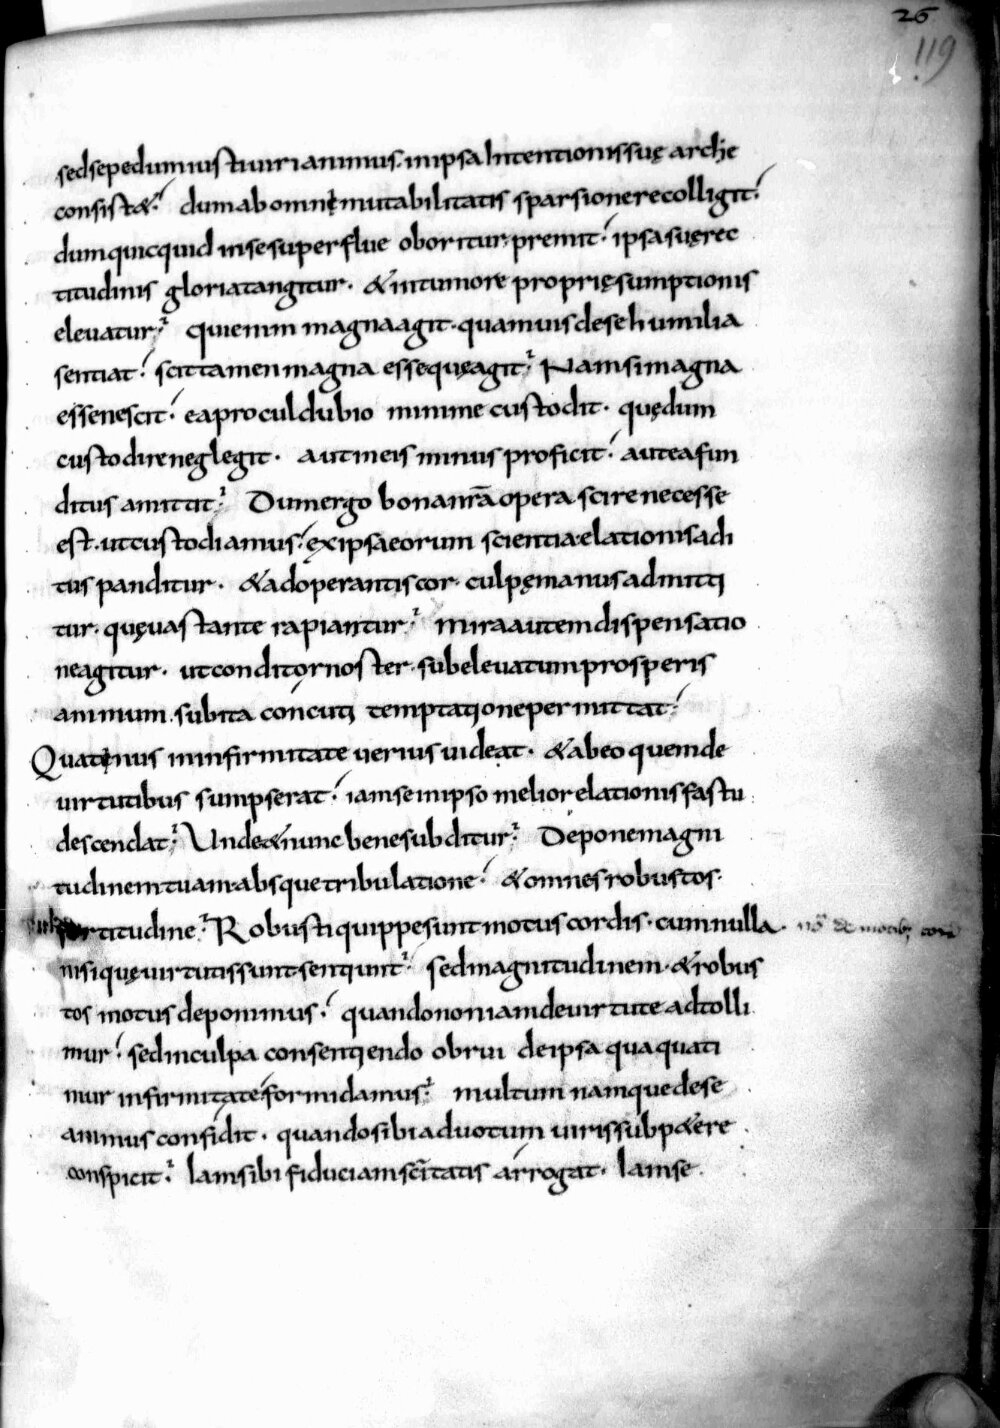 26
119
sed sepe dum iusti uiri animus. in ipsa intentionis suę arche
consistet. dum ab omni mutabilitatis sparsione recolligit.
dum quicquid in se superflue oboritur. premit. ipsa suę rec
titudinis gloria tangitur. & in tumore proprię sumptionis
eleuatur. qui enim magna agit. quamuis de se humilia
sentiat. scit tamen magna esse quę agit. Nam si magna
esse nescit. ea procul dubio minime custodit. quę dum
custodire neglegit. aut in eis minus proficit. aut ea fun
ditus amittit. Dum ergo bona nr̄a opera scire necesse
est. ut custodiamus. ex ipsa eorum scientia elationis adi
tus panditur. & ad operantis cor. culpę manus admitti
tur. quę uastante rapiantur. mira autem dispensatio
ne agitur. ut conditor noster. subeleuatum prosperis
animum. subita concuti temptatione permittat.
Quatenus in infirmitate uerius uideat. & ab eo quem de
uirtutibus sumpserat. iam se in ipso melior elationis fastu
descendat. Unde & nunc bene subditur. Depone magni
tudinem tuam absque tribulatione. & omnes robustos.
fortitudine. Robusti quippe sunt motus cordis. cum nulla.
nisi quę uirtutis sunt sentiunt. sed magnitudinem. & robus
tos motus deponimus. quando non iam de uirtute adtolli
mur. sed in culpa consentiendo obrui de ipsa qua quati
mur infirmitate formidamus. multum namque de se
animus confidit. quando sibi ad uotum uires subpetere
conspicit. Iam sibi fiduciam sc̄itatis arrogat. Iam se